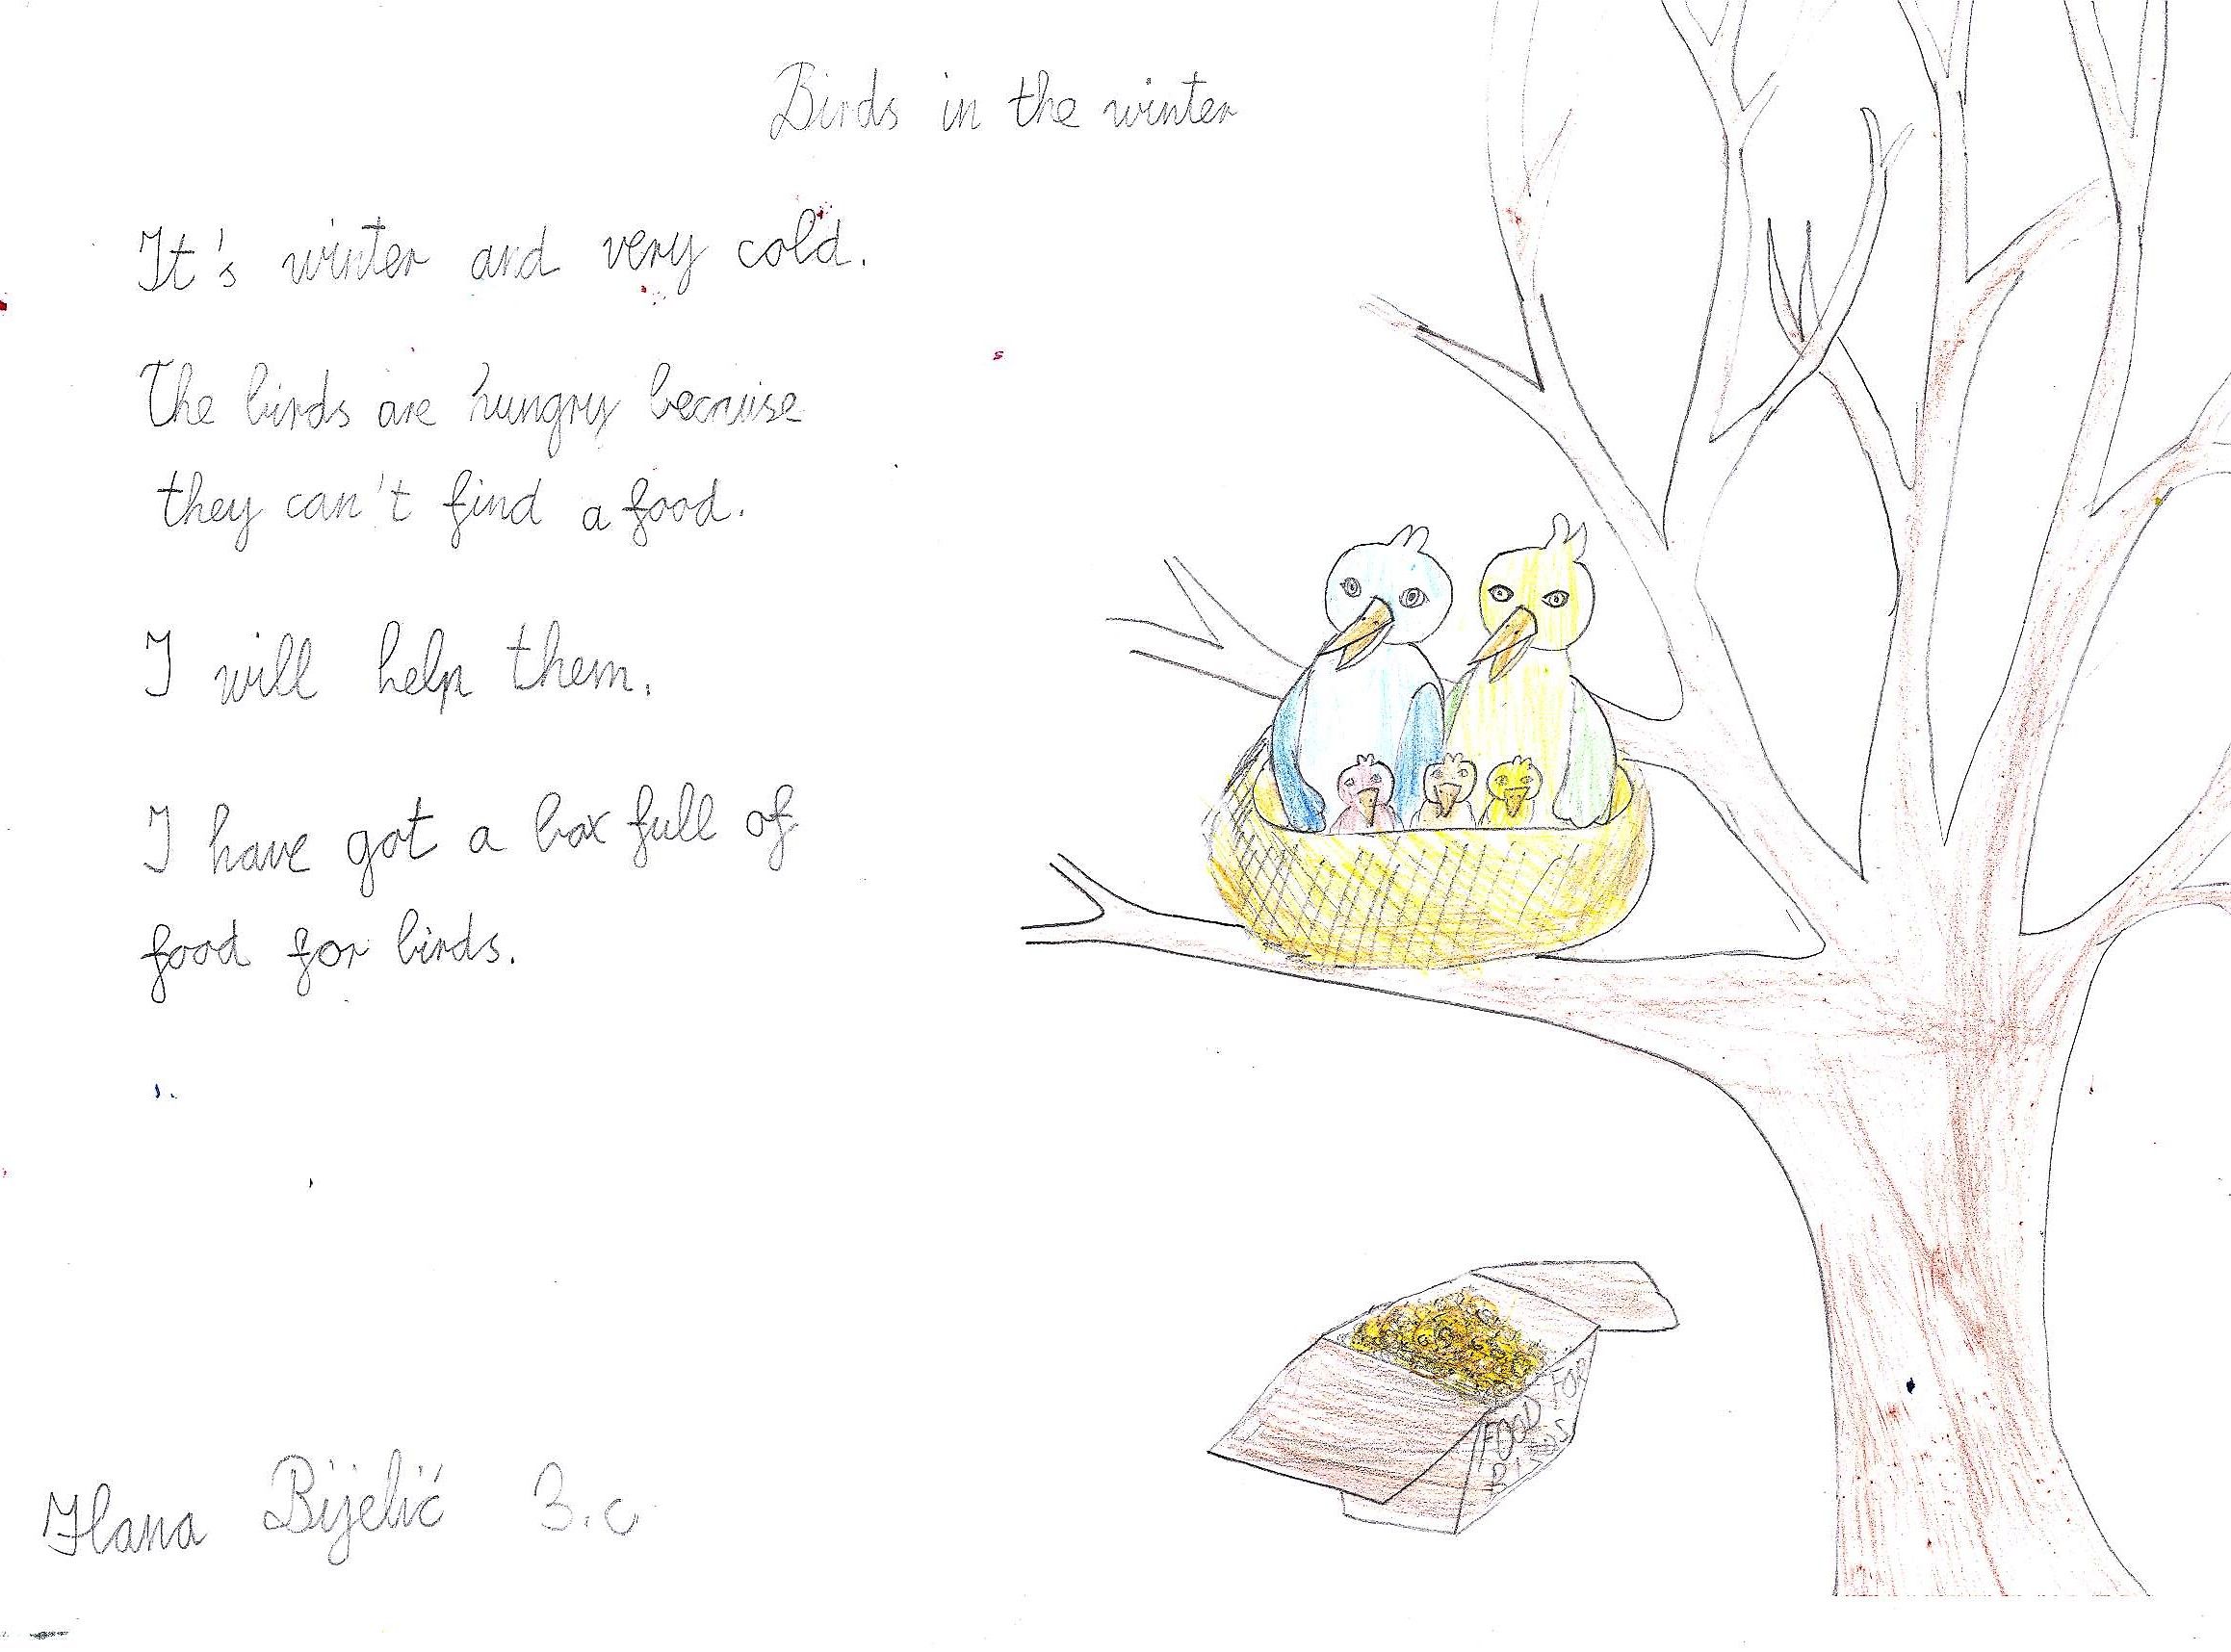 Birds in the winter
It's winter and very cold.
The birds are hungry because
they can't find a food.
I will help them.
I have got a box full of
food for birds.
FOOD FOR
BIRDS
Hana Bijelić 3.c